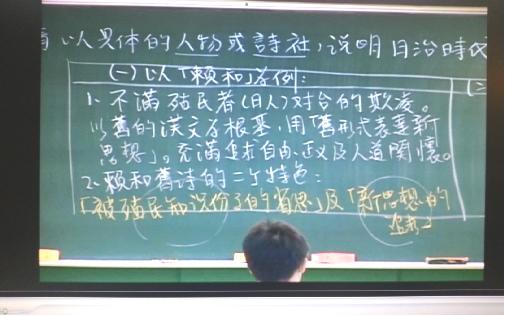 以具体的人物或詩社,説明日治時代
(一)以「賴和」為例:
1、不滿殖民者(日人)對台的欺凌。
以舊的漢文為根基,用「舊形式表達新
思想」。充滿追求自由、正义及人道關懷。
2、賴和舊詩的二个特色:
「被殖民知识份子的省思」及「新思想的
追求」